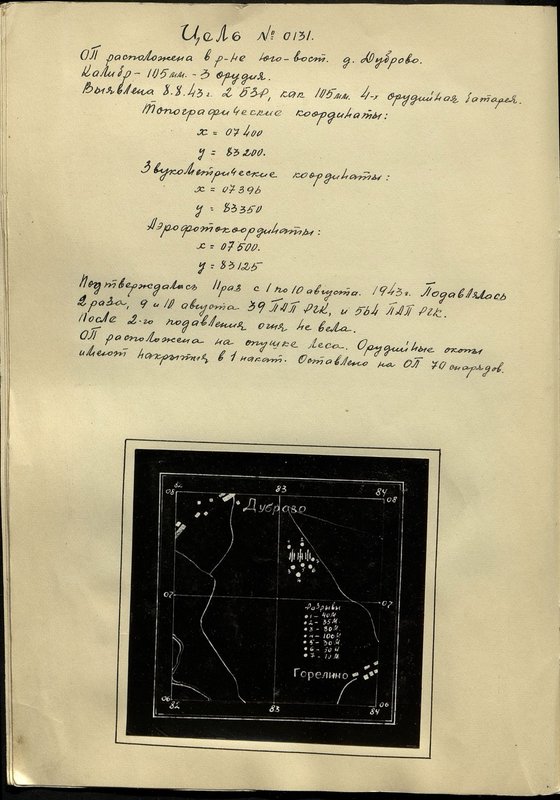 Цель № 0131.
ОП расположена в р-не юго-вост. д. Дуброво.
Калибр - 105 мм. - 3 орудия.
Выявлена 8.8.43 г. 2 БЗР, как 105 мм. 4-х орудийная батарея.
Топографические координаты:
x = 07400
y = 83200.
Звукометрические координаты:
x = 07396
y = 83350
Аэрофотокоординаты:
x = 07500.
y = 83125
Подтверждалась 11 раз с 1 по 10 августа. 1943 г. Подавлялась
2 раза, 9 и 10 августа 39 ПАП РГК, и 564 ПАП РГК.
После 2-го подавления огня не вела.
ОП расположена на опушке леса. Орудийные окопы
имеют накрытия в 1 накат. Оставлено на ОП 70 снарядов.
82 83 84
08 08
Дуброво
07 07
Разрывы
1 - 40 м.
2 - 35 м.
3 - 80 м.
4 - 100 м.
5 - 30 м.
6 - 50 м.
7 - 10 м.
Горелино
06 06
82 83 84